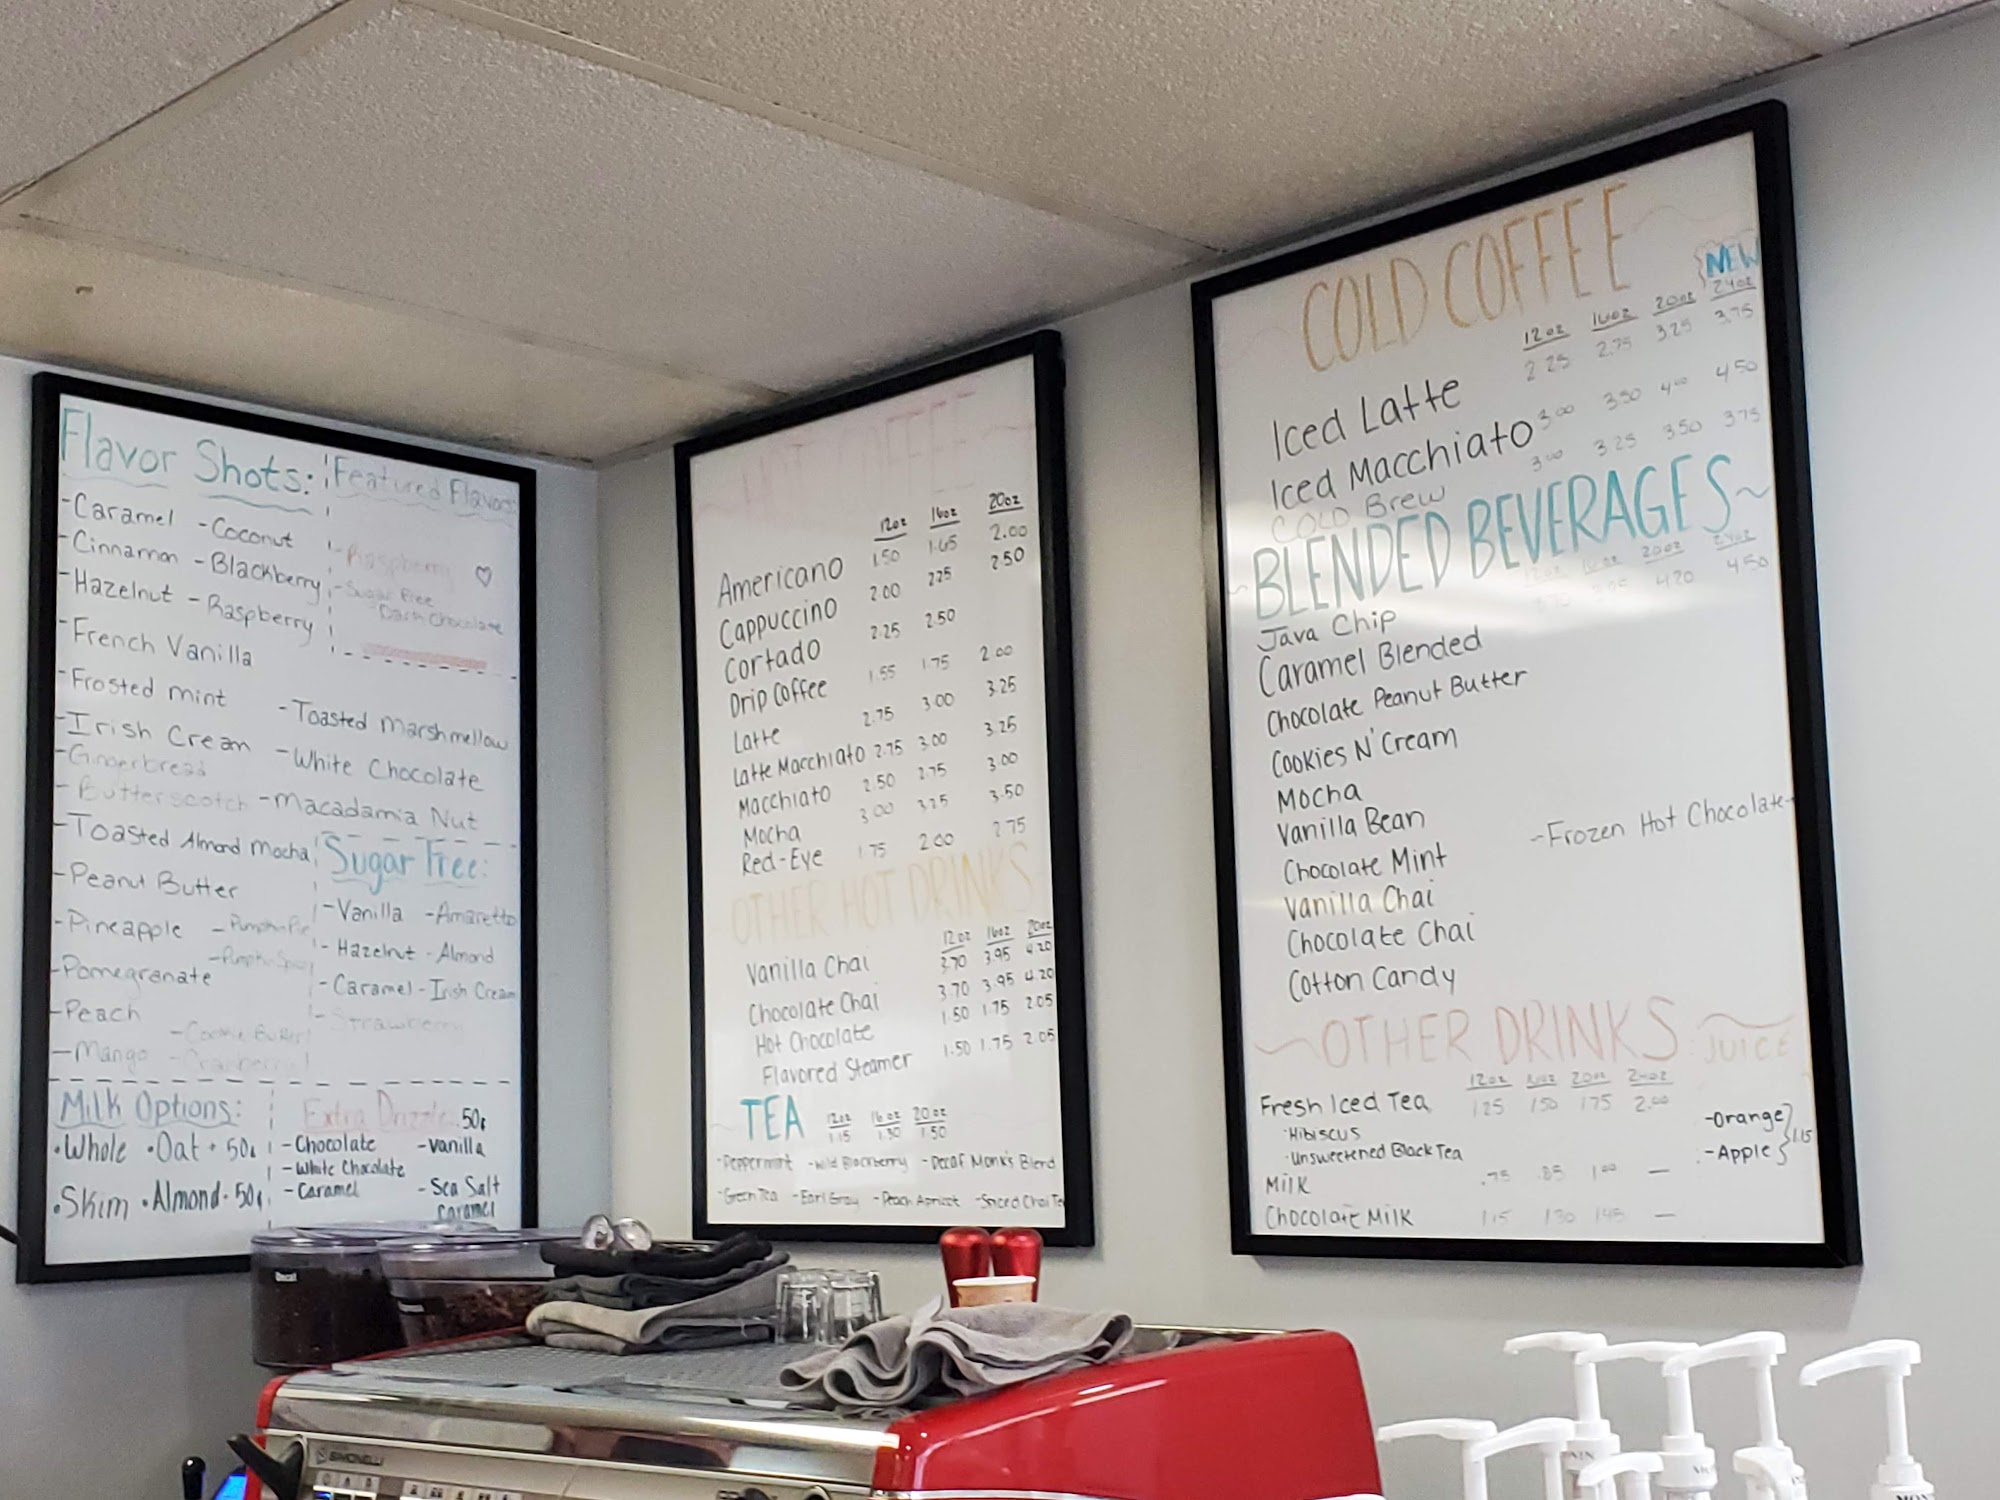 Flavor Shots:
Featured Flavors:
-Caramel -Coconut
-Cinnamon -Blackberry
-Hazelnut -Raspberry
-French Vanilla
-Raspberry ♡
-Sugar Free
Dark Chocolate
-Frosted mint
-Toasted Marshmellow
-Irish Cream -White Chocolate
-Gingerbread
-Butterscotch -Macadamia Nut
-Toasted Almond Mocha
-Peanut Butter
-Pineapple -Pumpkin Pie
-Pumpkin Spice
-Pomegranate
-Peach
-Cookie Butter
-Mango -Cranberry
Sugar Free:
-Vanilla -Amaretto
-Hazelnut -Almond
-Caramel -Irish Cream
-Strawberry
Milk Options:
•Whole •Oat + 50¢
•Skim •Almond - 50¢
Extra Drizzle: 50¢
-Chocolate -Vanilla
-White Chocolate
-Caramel -Sea Salt
Caramel
HOT COFFEE
12oz 16oz 20oz
Americano 1.50 1.65 2.00
Cappuccino 2.00 2.25 2.50
Cortado 2.25 2.50
Drip Coffee 1.55 1.75 2.00
Latte 2.75 3.00 3.25
Latte Macchiato 2.75 3.00 3.25
Macchiato 2.50 2.75 3.00
Mocha 3.00 3.25 3.50
Red-Eye 1.75 2.00 2.75
OTHER HOT DRINKS
12oz 16oz 20oz
Vanilla Chai 3.70 3.95 4.20
Chocolate Chai 3.70 3.95 4.20
Hot Chocolate 1.50 1.75 2.05
Flavored Steamer 1.50 1.75 2.05
TEA 12oz 16oz 20oz
1.15 1.30 1.50
-Peppermint -Wild Blackberry -Decaf Monk's Blend
-Green Tea -Earl Gray -Peach Apricot -Spiced Chai Tea
COLD COFFEE
NEW
12oz 16oz 20oz 24oz
Iced Latte 2.25 2.75 3.25 3.75
Iced Macchiato 3.00 3.50 4.00 4.50
Cold Brew 3.00 3.25 3.50 3.75
BLENDED BEVERAGES
12oz 16oz 20oz 24oz
3.70 3.95 4.20 4.50
Java Chip
Caramel Blended
Chocolate Peanut Butter
Cookies N' Cream
Mocha
Vanilla Bean
Chocolate Mint -Frozen Hot Chocolate-
Vanilla Chai
Chocolate Chai
Cotton Candy
OTHER DRINKS
12oz 16oz 20oz 24oz
Fresh Iced Tea 1.25 1.50 1.75 2.00
•Hibiscus
•Unsweetened Black Tea
Milk .75 .85 1.00 —
Chocolate Milk 1.15 1.30 1.45 —
JUICE
-Orange
-Apple } 1.15
SIMONELLI